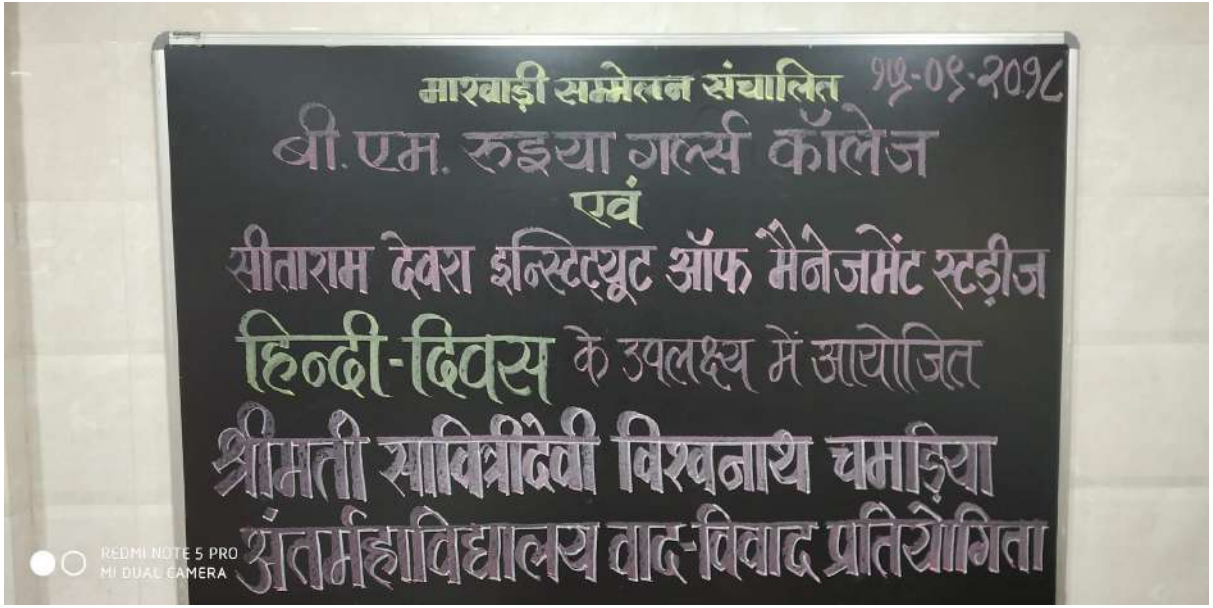 मारवाड़ी सम्मेलन संचालित १५-०९-२०१८
बी.एम. रुइया गर्ल्स कॉलेज
एवं
सीताराम देवरा इन्स्टिट्यूट ऑफ मैनेजमेंट स्टडीज
हिन्दी-दिवस के उपलक्ष्य में आयोजित
श्रीमती सावित्रीदेवी विश्वनाथ चमाड़िया
अंतर्महाविद्यालय वाद-विवाद प्रतियोगिता
REDMI NOTE 5 PRO
MI DUAL CAMERA